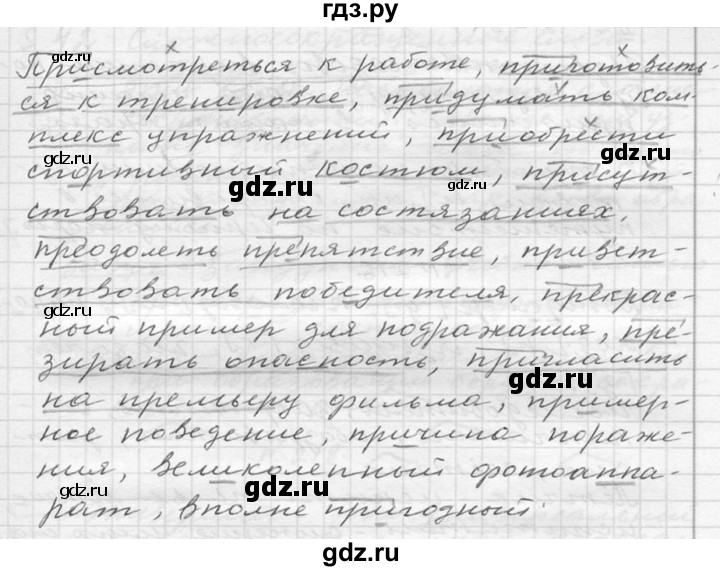 гдз.ру
Присмотреться к работе, приготовить-
ся к тренировке, придумать ком-
плекс упражнений, приобрести
спортивный костюм, присут-
ствовать на состязаниях,
преодолеть препятствие, привет-
ствовать победителя, прекрас-
ный пример для подражания, пре-
зирать опасность, пригласить
на премьеру фильма, пример-
ное поведение, причина пораже-
ния, великолепный фотоаппа-
рат, вполне пригодный.
gdz.ru
gdz.ru
gdz.ru
gdz.ru
gdz.ru
gdz.ru
gdz.ru
gdz.ru
gdz.ru
gdz.ru
gdz.ru
gdz.ru
gdz.ru